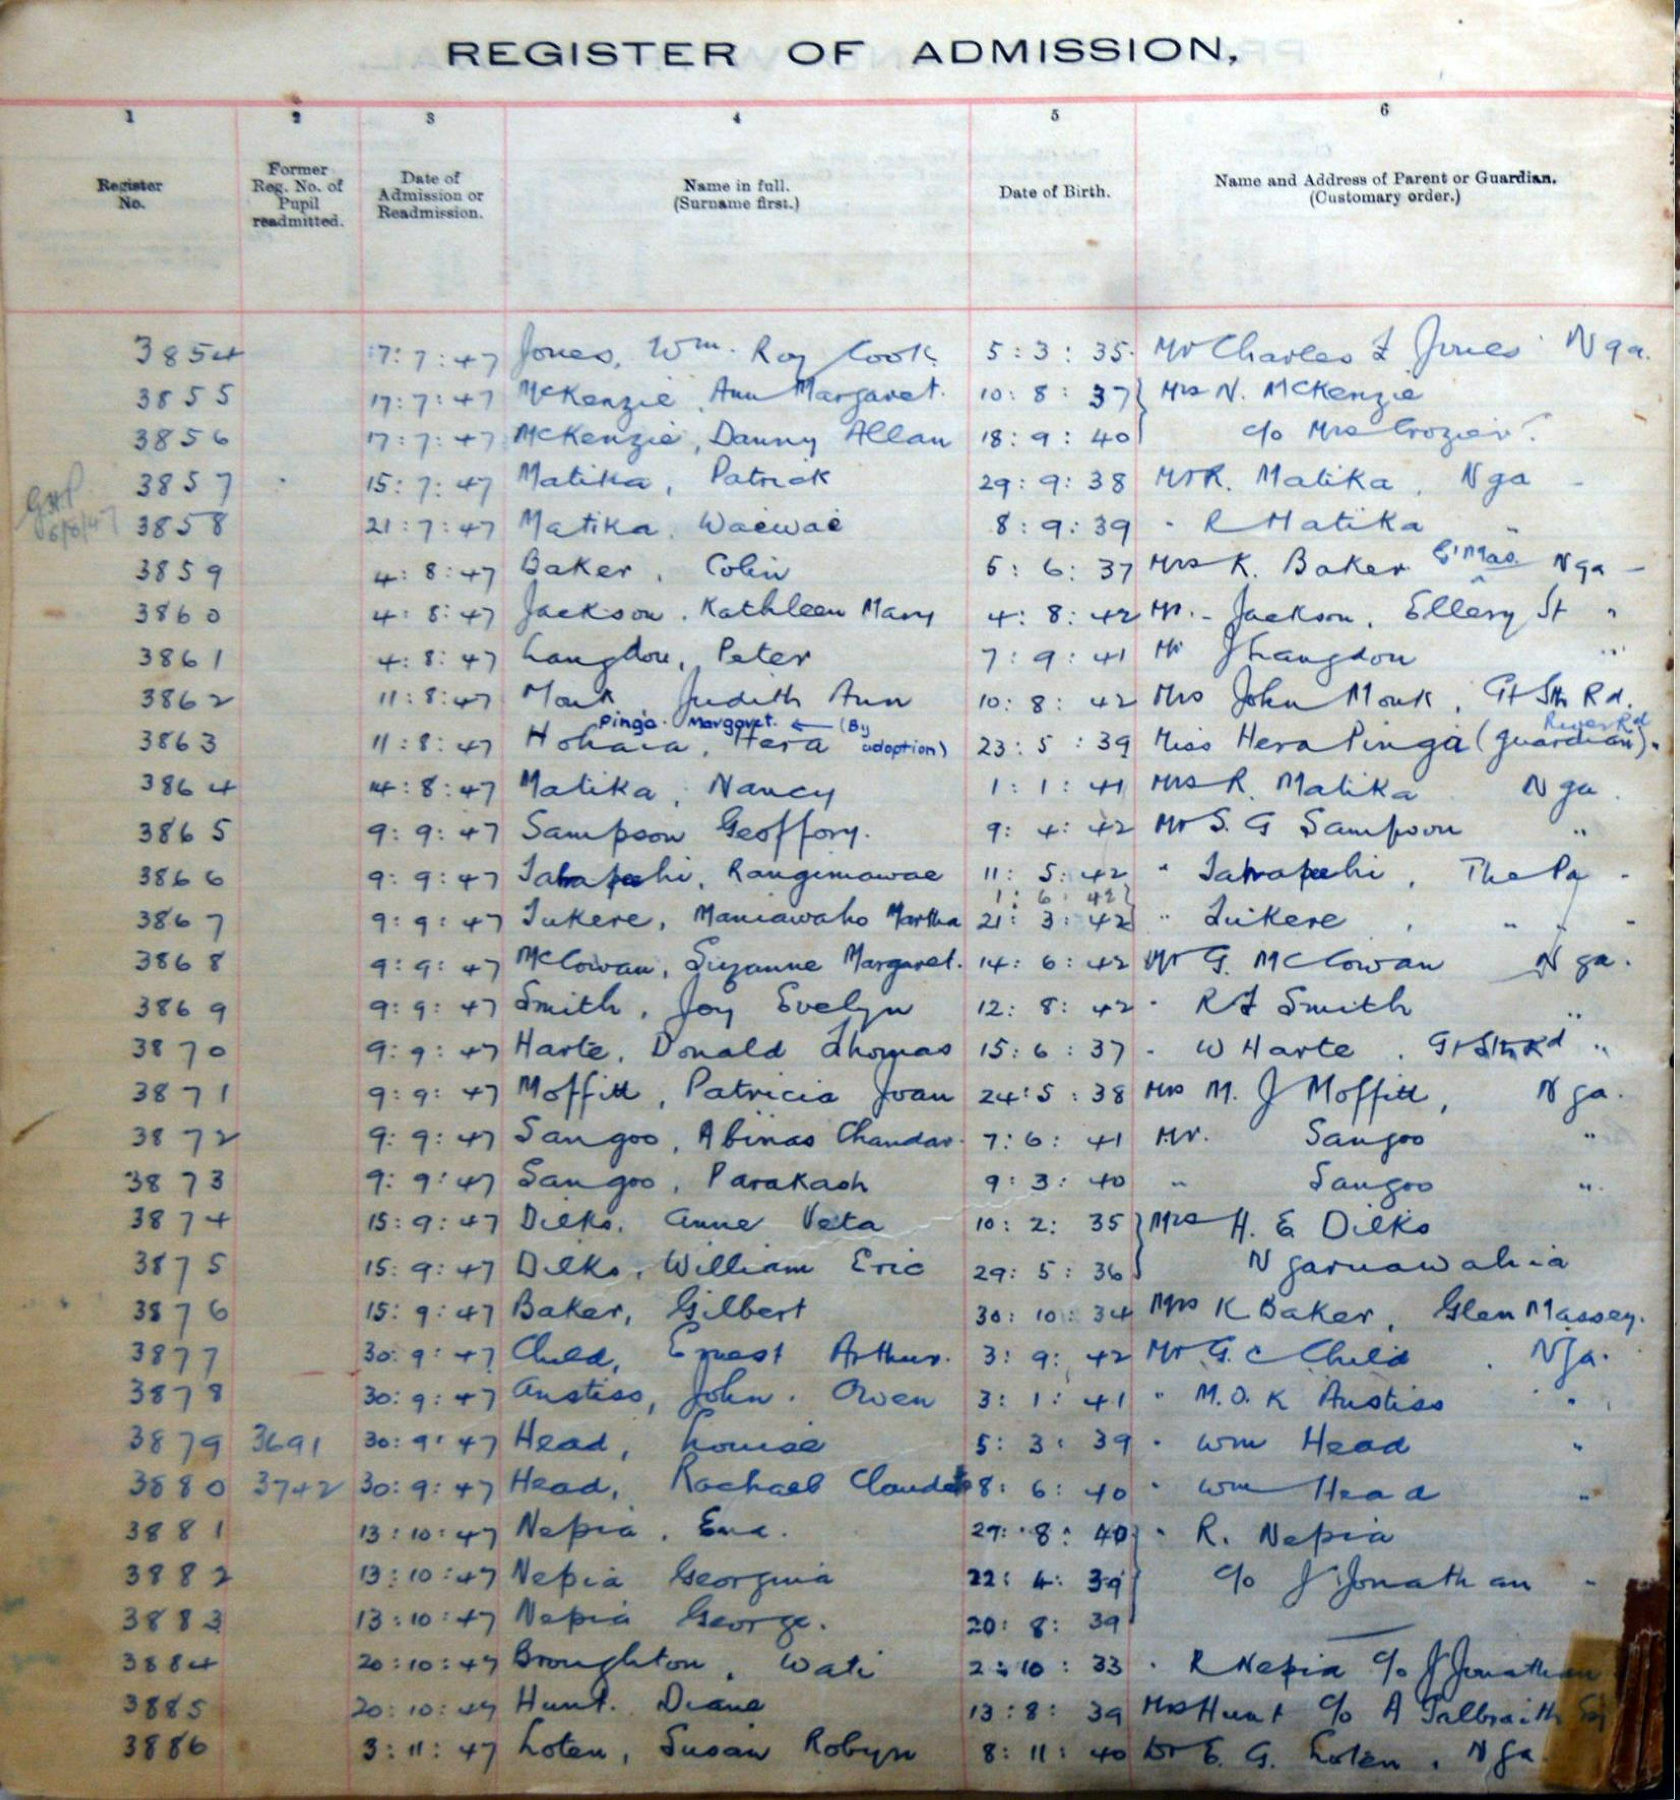 REGISTER OF ADMISSION,
1 2 3 4 5 6
Register No. Former Reg. No. of Pupil readmitted. Date of Admission or Readmission. Name in full. (Surname first.) Date of Birth. Name and Address of Parent or Guardian. (Customary order.)
3854 17:7:47 Jones, Wm. Roy Cook 5:3:35 Mr Charles F Jones Nga.
3855 17:7:47 McKenzie, Ann Margaret. 10:8:37 Mrs N. McKenzie
3856 17:7:47 McKenzie, Danny Allan 18:9:40 c/o Mrs Crozier.
3857 15:7:47 Matika, Patrick 29:9:38 Mr R. Matika, Nga
3858 21:7:47 Matika, Waewae 8:9:39 " R Matika "
3859 4:8:47 Baker, Colin 5:6:37 Mrs K. Baker G'Mas. Nga
3860 4:8:47 Jackson, Kathleen Mary 4:8:42 Mr. - Jackson, Ellery St "
3861 4:8:47 Langdon, Peter 7:9:41 Mr J Langdon "
3862 11:8:47 Monk Judith Ann 10:8:42 Mrs John Monk, Gt Sth Rd.
Pinga. Margaret. ← (By adoption) River Rd
3863 11:8:47 Hohaia, Hera 23:5:39 Miss Hera Pinga (guardian) "
3864 14:8:47 Matika, Nancy 1:1:41 Mrs R. Matika Nga.
3865 9:9:47 Sampson Geoffory. 9:4:42 Mr S. G Sampson "
3866 9:9:47 Rangimawae 11:5:42 " The Pa
1:6:42
3867 9:9:47 Tukere, Maniawaho Martha 21:3:42 " Tukere, " "
3868 9:9:47 McCowan, Suzanne Margaret. 14:6:42 Mr G. McCowan Nga.
3869 9:9:47 Smith, Joy Evelyn 12:8:42 " R F Smith "
3870 9:9:47 Harte, Donald Thomas 15:6:37 " W Harte, Gt Sth Rd "
3871 9:9:47 Moffitt, Patricia Joan 24:5:38 Mrs M. J Moffitt, Nga.
3872 9:9:47 Sangoo, Abinas Chandar. 7:6:41 Mr. Sangoo "
3873 9:9:47 Sangoo, Parakash 9:3:40 " Sangoo "
3874 15:9:47 Dilks, Anne Veta 10:2:35 Mrs H. E Dilks
3875 15:9:47 Dilks, William Eric 29:5:36 Ngaruawahia
3876 15:9:47 Baker, Gilbert 30:10:34 Mrs K Baker, Glen Massey.
3877 30:9:47 Child, Ernest Arthur. 3:9:42 Mr G. C Child, Nga.
3878 30:9:47 Anstiss, John Owen 3:1:41 " M.O.K Anstiss "
3879 3691 30:9:47 Head, Louise 5:3:39 " Wm Head "
3880 3742 30:9:47 Head, Rachael 8:6:40 " Wm Head "
3881 13:10:47 Nepia, 29:8:40 " R. Nepia
3882 13:10:47 Nepia Georgina 22:4:39 c/o J Jonathan "
3883 13:10:47 Nepia George. 20:8:39
3884 20:10:47 Broughton, Wati 2:10:33 " R Nepia c/o J Jonathan
3885 20:10:47 Hunt. Diane 13:8:39 Mrs Hunt c/o A Galbraith
3886 3:11:47 Loten, Susan Robyn 8:11:40 Dr E. G. Loten, Nga.